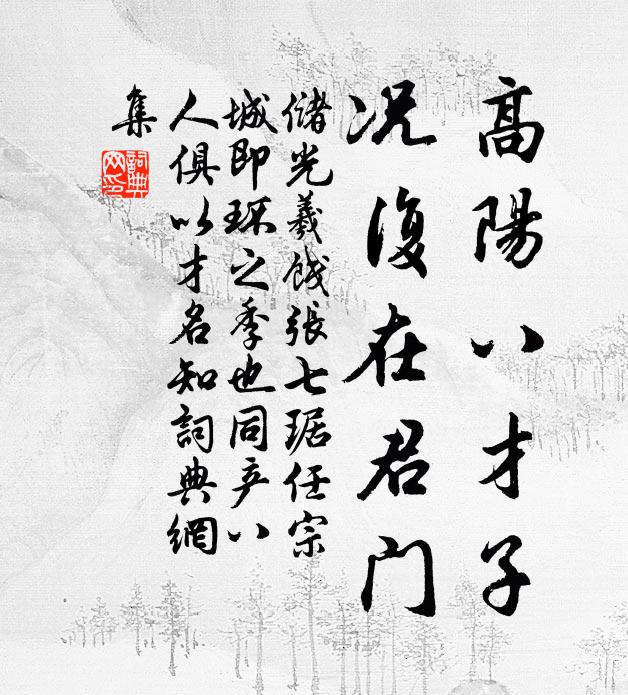 高陽八才子
况復在君門
儲光羲餞張七琚任宗
城即環之季也同产八
人俱以才名知詞典網
集
詞典網印